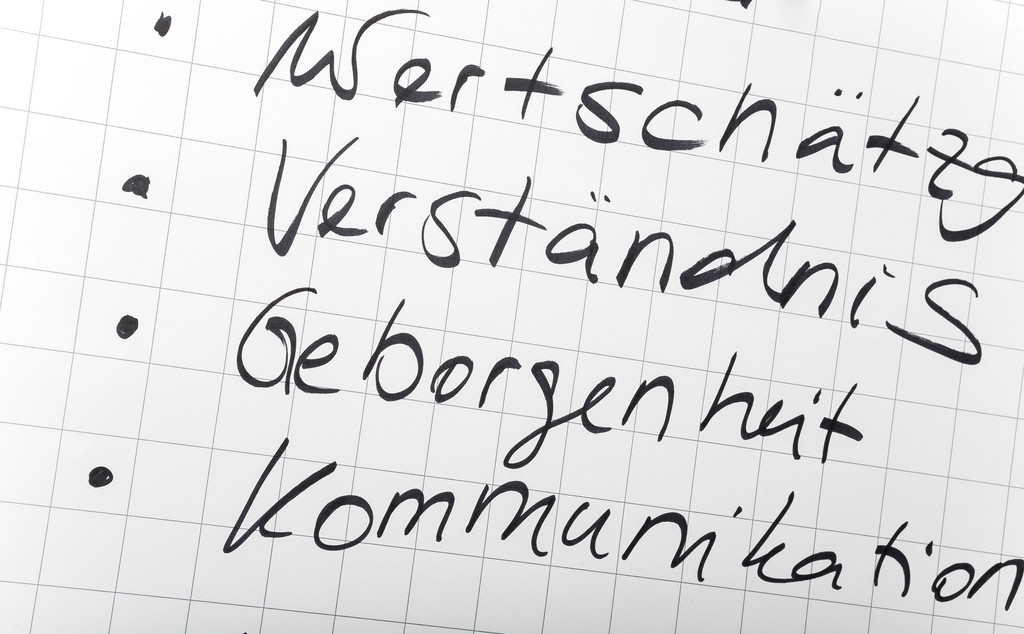 • Wertschätzg
• Verständnis
• Geborgenheit
• Kommunikation